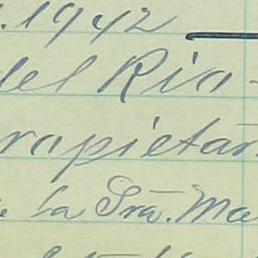 . 1942
del Rio-
ropietar
la Sra. Ma